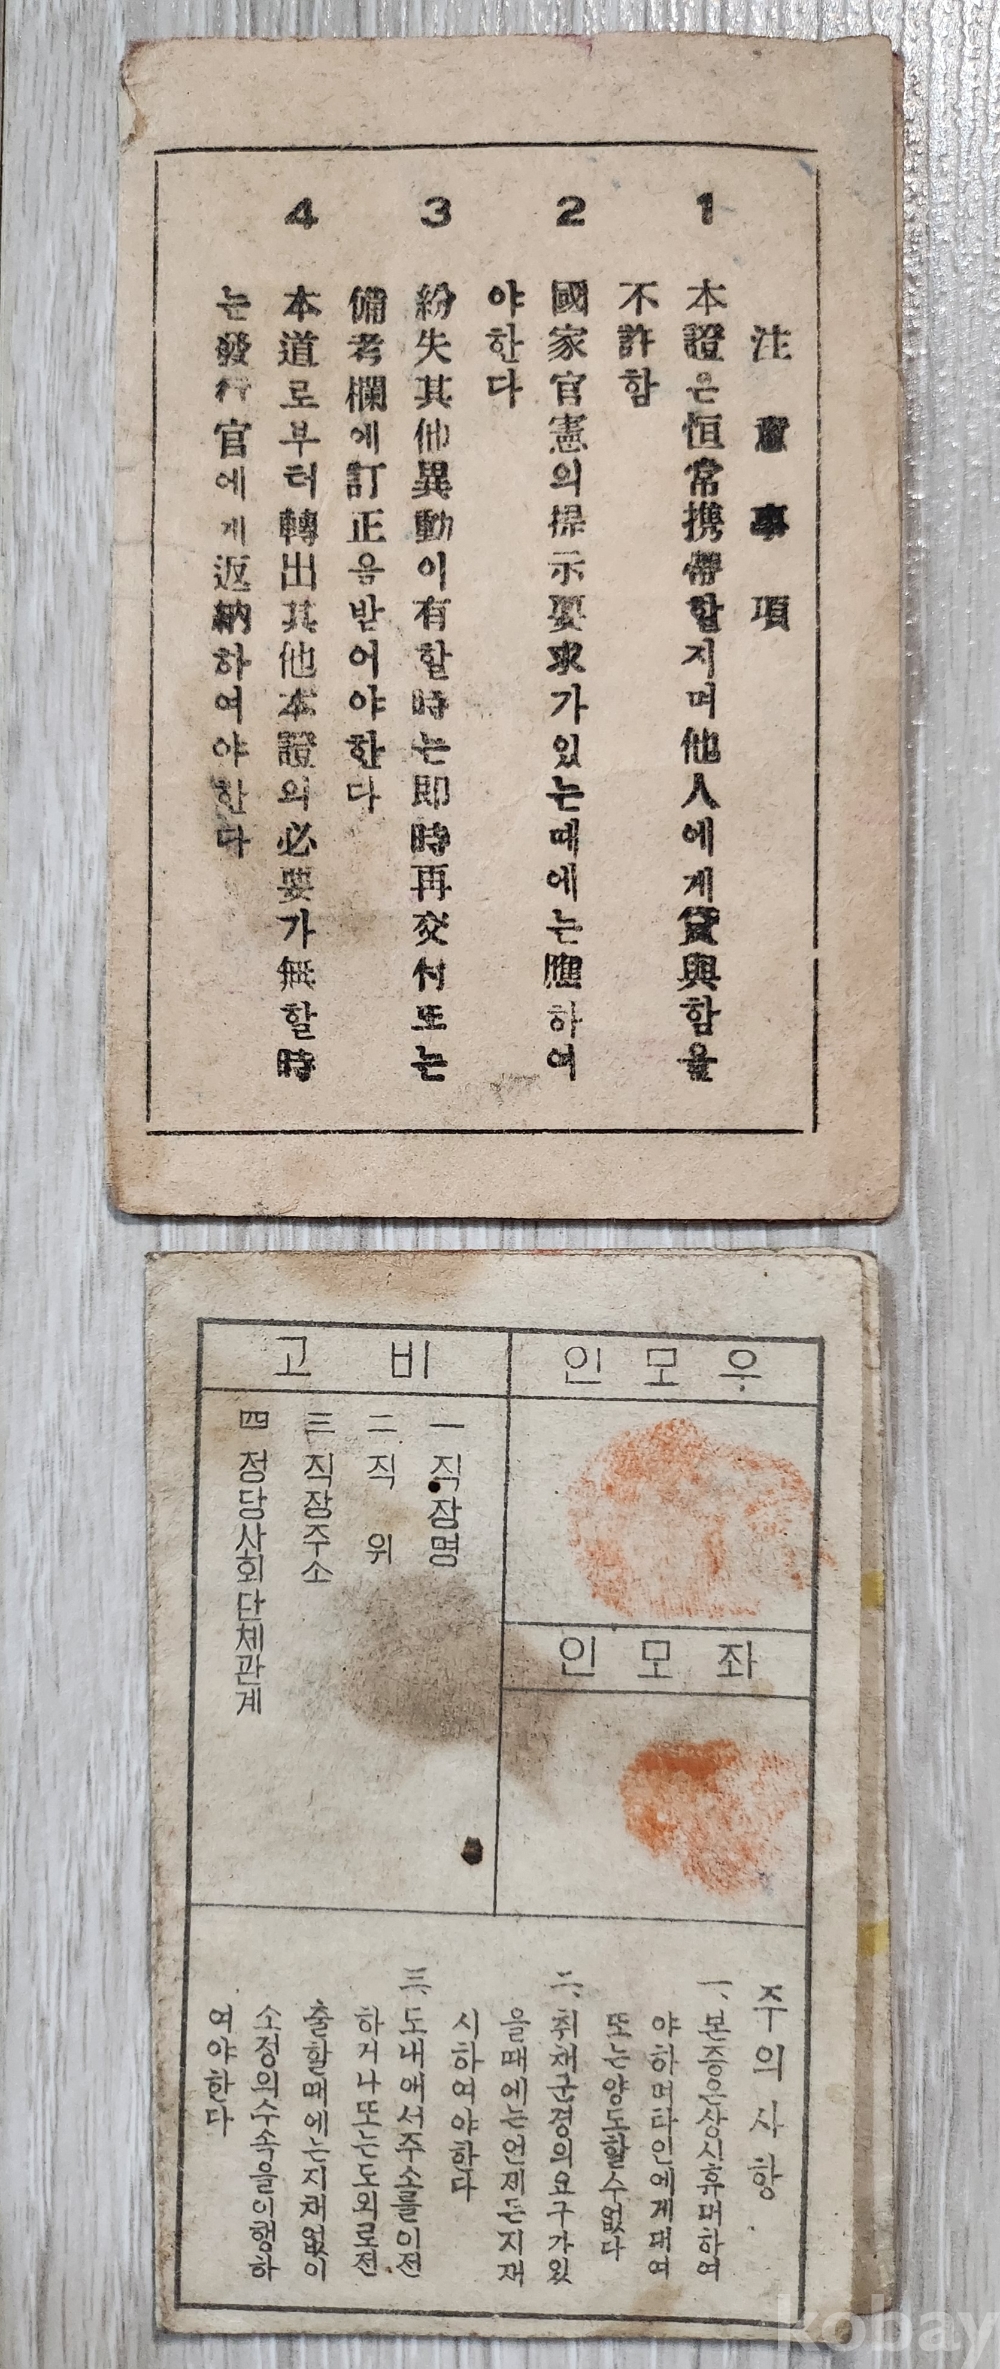 注意事項
1 本證은恒常携帶할지며他人에게貸與함을
不許함
2 國家官憲의提示要求가있는때에는應하여
야한다
3 紛失其他異動이有할時는即時再交付또는
備考欄에訂正을받어야한다
4 本道로부터轉出其他本證의必要가無할時
는發行官에게返納하여야한다
우모인
좌모인
비고
一 직장명
二 직위
三 직장주소
四 정당사회단체관계
주의사항
一、본증은상시휴대하여
야하며타인에게대여
또는양도할수없다
二、취체군경의요구가있
을때에는언제든지재
시하여야한다
三、도내애서주소를이전
하거나또는도외로전
출할때에는지채없이
소정의수속을이행하
여야한다
kobay